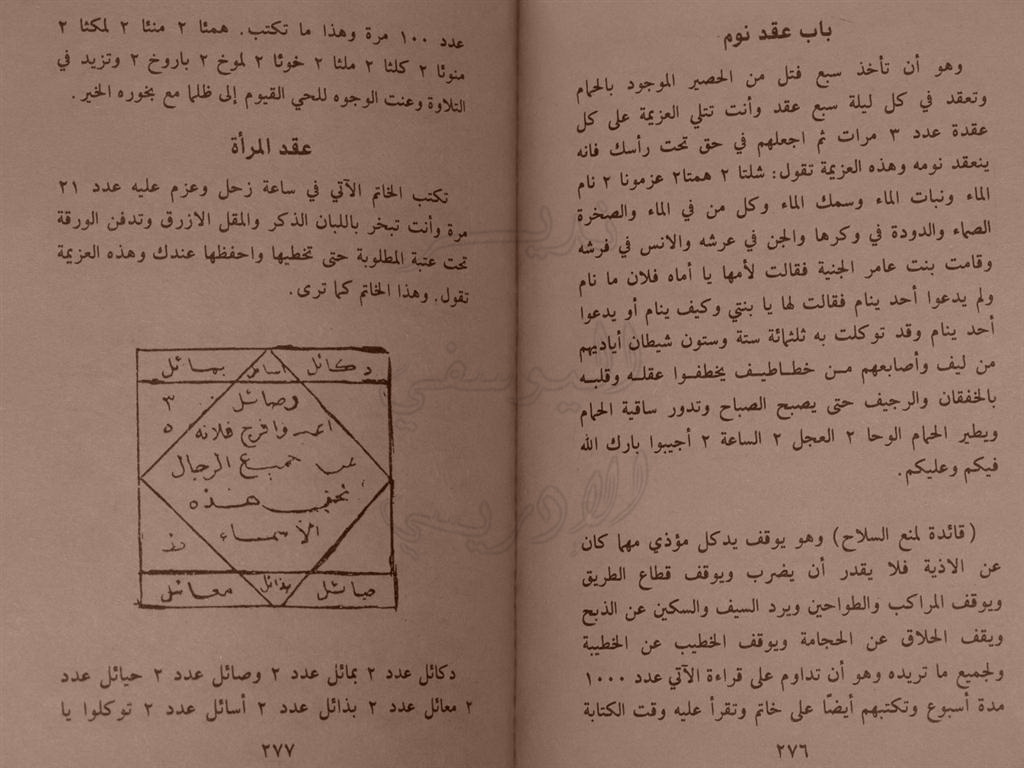 باب عقد نوم
وهو أن تأخذ سبع فتل من الحصير الموجود بالحمام
وتعقد في كل ليلة سبع عقد وأنت تتلي العزيمة على كل
عقدة عدد ٣ مرات ثم اجعلهم في حق تحت رأسك فانه
ينعقد نومه وهذه العزيمة تقول: شلتا ٢ همتا٢ عزمونا ٢ نام
الماء ونبات الماء وسمك الماء وكل من في الماء والصخرة
الصماء والدودة في وكرها والجن في عرشه والانس في فرشه
وقامت بنت عامر الجنية فقالت لأمها يا أماه فلان ما نام
ولم يدعوا أحد ينام فقالت لها يا بنتي وكيف ينام أو يدعوا
أحد ينام وقد توكلت به ثلثمائة ستة وستون شيطان أياديهم
من ليف وأصابعهم من خطاطيف يخطفوا عقله وقلبه
بالخفقان والرجيف حتى يصبح الصباح وتدور ساقية الحمام
ويطير الحمام الوحا ٢ العجل ٢ الساعة ٢ أجيبوا بارك الله
فيكم وعليكم.
(قائدة لمنع السلاح) وهو يوقف يدكل مؤذي مهما كان
عن الاذية فلا يقدر أن يضرب ويوقف قطاع الطريق
ويوقف المراكب والطواحين ويرد السيف والسكين عن الذبح
ويقف الحلاق عن الحجامة ويوقف الخطيب عن الخطيبة
ولجميع ما تريده وهو أن تداوم على قراءة الآتي عدد ١٠٠٠
مدة أسبوع وتكتبهم أيضًا على خاتم وتقرأ عليه وقت الكتابة
٢٧٦
عدد ١٠٠ مرة وهذا ما تكتب. همثا ٢ منثا ٢ لمكثا ٢
منوثا ٢ كلثا ٢ ملثا ٢ خوثا ٢ لموخ ٢ باروخ ٢ وتزيد في
التلاوة وعنت الوجوه للحي القيوم إلى ظلما مع بخوره الخير.
عقد المرأة
تكتب الخاتم الآتي في ساعة زحل وعزم عليه عدد ٢١
مرة وأنت تبخر باللبان الذكر والمقل الازرق وتدفن الورقة
تحت عتبة المطلوبة حتى تخطيها واحفظها عندك وهذه العزيمة
تقول. وهذا الخاتم كما ترى.
دكائل أسائل بمائل
وصائل ٣
وافرج فلانه ٥
جميع الرجال
بحق هذه
الأسماء
حيائل بذائل معائل
دكائل عدد ٢ بمائل عدد ٢ وصائل عدد ٢ حيائل عدد
٢ معائل عدد ٢ بذائل عدد ٢ أسائل عدد ٢ توكلوا يا
٢٧٧